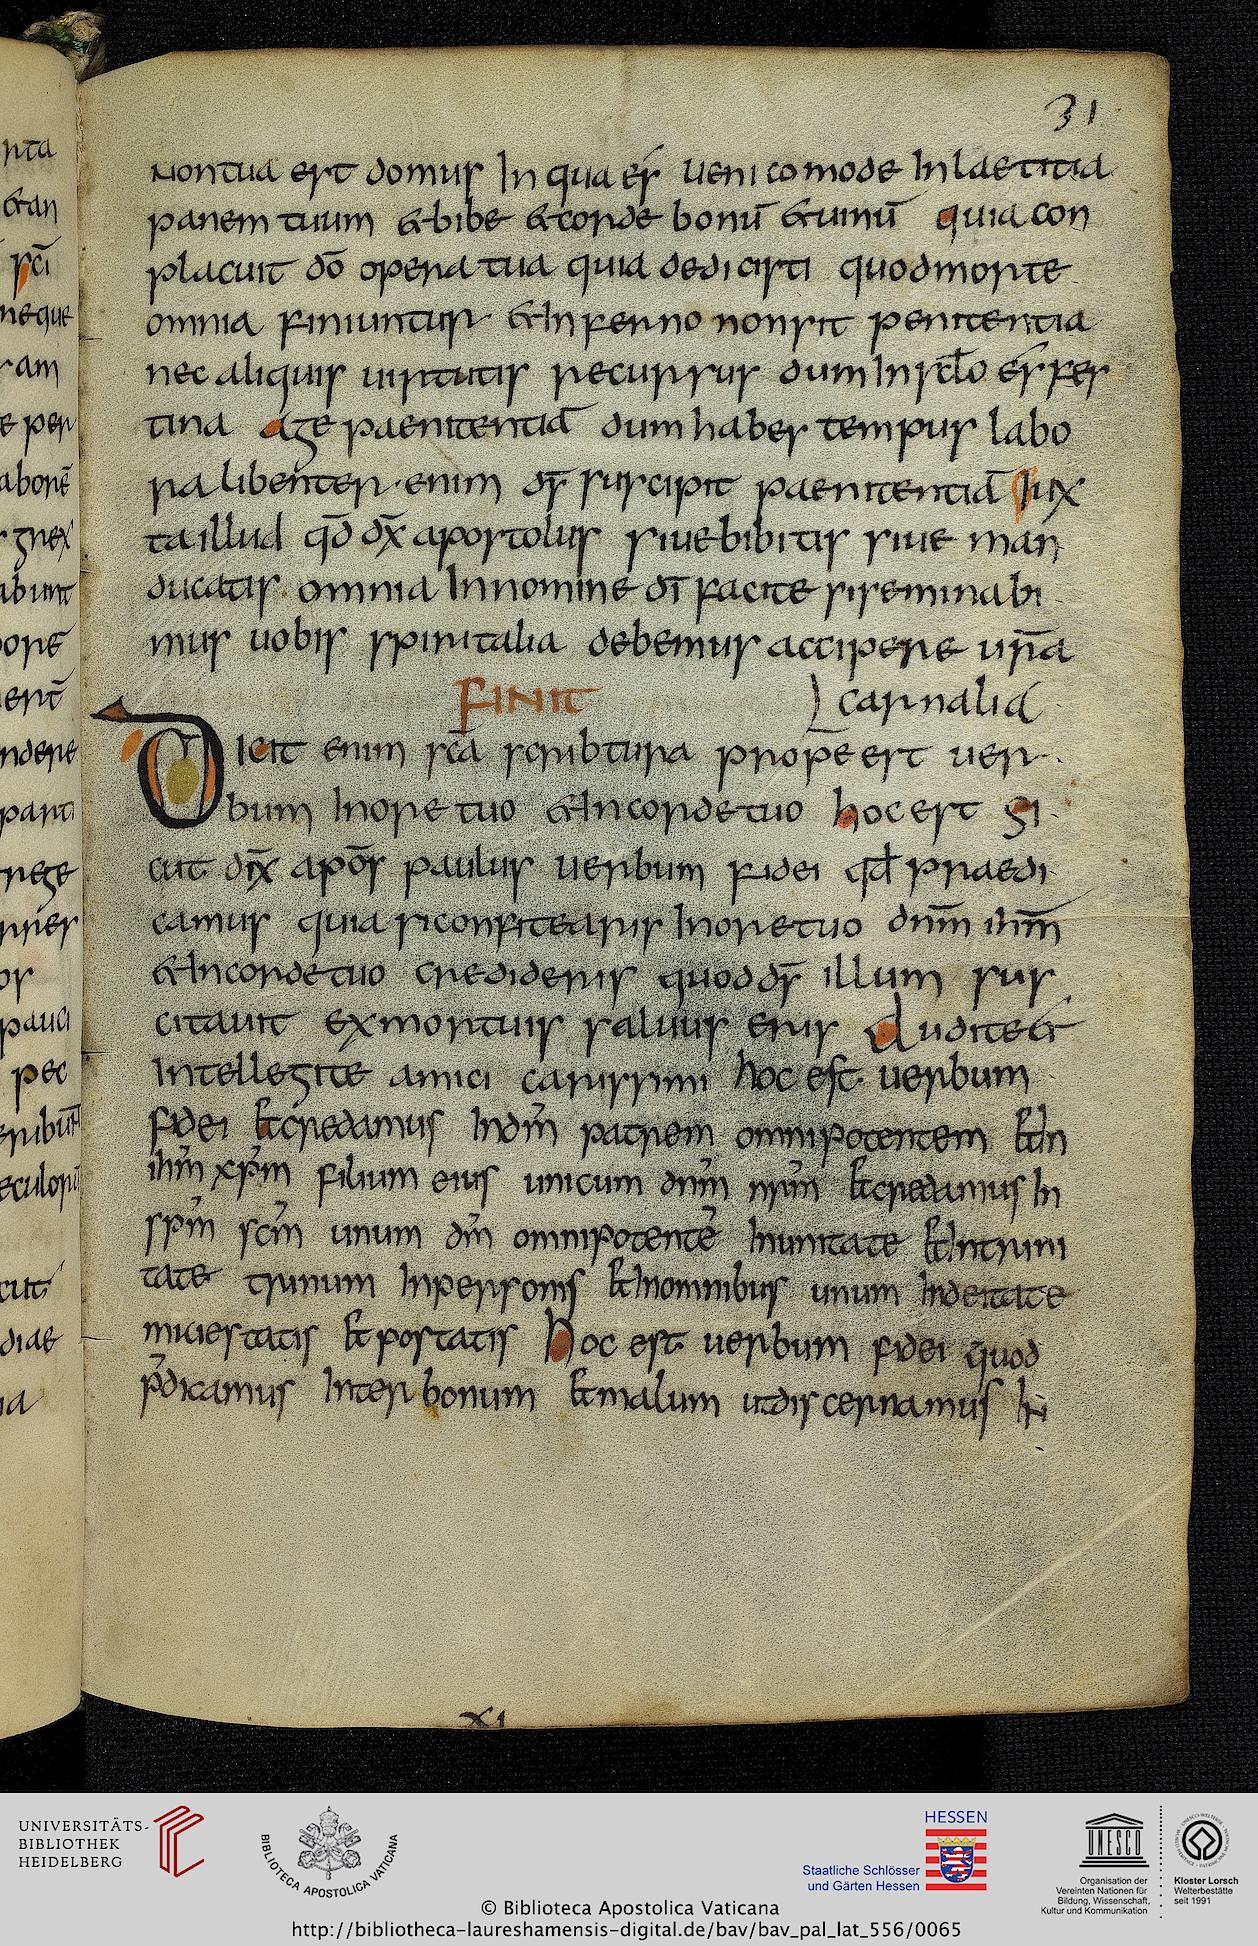 31
Non tua est domus In qua és ueni comode In laetitia
panem tuum & bibe & conde bonū & uinū quia con
placuit dō opera tua quia dedicisti quod morte
omnia finiuntur & In ferno non sit penitentia
nec aliquis uirtutis recursus dum In sclo és fes
tina age paenitentiā dum habes tempus labo
ra libenter enim ds suscipit paenitentiā Iux
ta illud qd dx apostolus siue bibitis siue man
ducatis omnia In nomine dī facite si seminabi
mus uobis spiritalia debemus accipere ur̄a
Finit carnalia
Dicit enim scā scribtura prope est uer
bum In ore tuo & In corde tuo hoc est si
cut dix apōs paulus uerbum fidei qđ praedi
camus quia si confitearis In ore tuo dnm̄ ihm̄
& In corde tuo credideris quod ds illum sus
citauit ex mortuis saluus eris Audite &
Intellegite amici carissimi hoc est uerbum
fidei Et credamus In dm̄ patrem omnipotentem Et In
ihm̄ xpm̄ filium eius unicum dnm̄ nrm̄ Et credamus In
spm̄ scm̄ unum dm̄ omnipotentē In unitate Et In trini
tate trinum In personis Et In omnibus unum In deitate
maiestatis Et postatis Hoc est uerbum fidei quod
p̄dicamus Inter bonum Et malum ut discernamus In
XI
rita
& an
scī
neque
ram
e per
aborē
grex
abunt
ore
erit
ndere
parti
rege
os
pauci
pec
cut
diae
ia
UNIVERSITÄTS-
BIBLIOTHEK
HEIDELBERG
BIBLIOTECA APOSTOLICA VATICANA
HESSEN
Staatliche Schlösser
und Gärten Hessen
UNESCO
Organisation der
Vereinten Nationen für
Bildung, Wissenschaft,
Kultur und Kommunikation
Kloster Lorsch
Welterbestätte
seit 1991
© Biblioteca Apostolica Vaticana
http://bibliotheca-laureshamensis-digital.de/bav/bav_pal_lat_556/0065